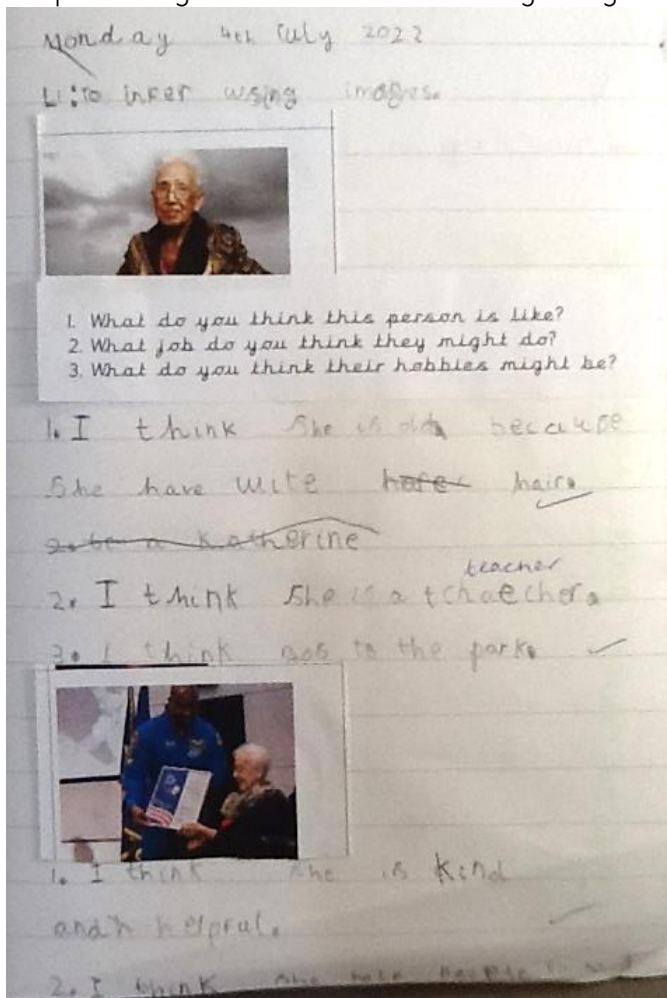 Monday 4th July 2022
LI: To infer using images.
1. What do you think this person is like?
2. What job do you think they might do?
3. What do you think their hobbies might be?
1. I think she is old because
She have wite hair.
2. be a Katherine
teacher
2. I think she is a tchaecher.
3. I think to the park.
1. I think she is kind
and helpful.
2. I think she